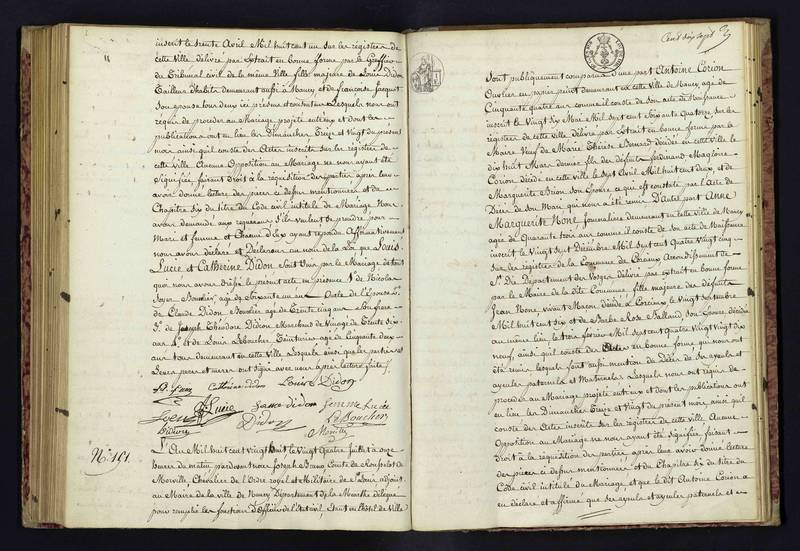 inscrit le trente Avril Mil huit cent un sur les registres de
cette Ville délivré par Extrait en bonne forme par le Greffier
du Tribunal civil de la même Ville fille majeure de Louis Didon
Tailleur d'habits demeurant aussi à Nancy et de françoise Jacquot
Son épouse tous deux ici présens et consentans Lesquels nous ont
requis de procéder au Mariage projeté entr'eux et dont les
publications ont eu lieu les Dimanches Treize et Vingt du présent
mois ainsi qu'il conste des Actes inscrits sur les registres de
cette Ville Aucune Opposition au Mariage ne nous ayant été
Signifiée, faisant droit à la réquisition des parties après leur
avoir donné lecture des pièces ci dessus mentionnées et du
Chapitre Six du titre du Code civil intitulé du Mariage Nous
avons demandé aux requérans s'ils veulent se prendre pour
Mari et femme et Chacun d'Eux ayant répondu Affirmativement
nous avons déclaré et Déclarons au nom de la Loi que Louis
Lucie et Catherine Didon Sont Unis par le Mariage de tout
quoi nous avons dressé le présent acte en présence 1° de Nicolas
Boursier, agé de Soixante un ans
de Claude Didon Boursier agé de Trente cinq ans
3° de Joseph Théodore Didion Marchand de Vinaigre de Trente Six
ans 4° et de Louis Leboucher Teinturier agé de Cinquante deux
ans tous demeurant en cette Ville Lesquels ainsi que les parties
Leurs pères et mères ont signé avec nous après lecture faite
Catherine Didon Louis Didon
Lucie femme Lucie
Didion Didon LeBoucher
N° 161. L'An Mil huit cent vingt huit le Vingt Quatre Juillet à onze
heures du matin pardevant nous Joseph Comte de
Merville, Chevalier de l'Ordre royal et Militaire de St Louis adjoint
au Maire de la ville de Nancy Département de la Meurthe délégué
pour remplir les fonctions d'Officier de l'état civil, Etant en l'hôtel de Ville
Cent dix sept
Sont publiquement comparus d'une part Antoine Corion
Ouvrier en papier peint demeurant en cette Ville de Nancy, agé de
Cinquante quatre ans comme il conste de son acte de Naissance
inscrit le Vingt Six Mai Mil Sept cent Soixante Quatorze Sur les
registres de cette Ville délivré par Extrait en bonne forme par le
Maire Veuf de Marie Thérèse Bernard décédée en cette Ville le
dix huit Mars dernier fils des défunts ferdinand
Corion décédé en cette Ville le Sept Avril Mil huit cent deux, et de
Marguerite Son Epouse ce qui est constaté par l'Acte de
Décès de Son Mari qui nous a été remis D'autre part Anne
Marguerite None Journalière demeurant en cette Ville de Nancy
agée de Quarante trois ans comme il conste de son acte de Naissance
inscrit le Vingt Sept Décembre Mil Sept cent Quatre Vingt cinq
Sur les registres de la Commune de Corcieux Arrondissement de
St Dié Département des Vosges délivré par extrait en bonne forme
par le Maire de la dite Commune fille majeure des défunts
Jean None, vivant Macon décédé à Corcieux le Vingt Septembre
Mil huit cent six et de Barbe Rose Balland, Son Epouse décédée
au même lieu le trois février Mil Sept cent Quatre Vingt dix
neuf, ainsi qu'il conste des Actes en bonne forme qui nous ont
été remis lesquels font aussi mention du Décès de Ses ayeuls et
ayeules paternels et Maternels Lesquels nous ont requis de
procéder au Mariage projeté entr'eux et dont les publications ont
eu lieu les Dimanches Treize et Vingt du présent mois ainsi qu'il
conste des Actes inscrits sur les registres de cette Ville Aucune
Opposition au Mariage ne nous ayant été Signifiée faisant
Droit à la réquisition des parties, après leur avoir donné Lecture
des pièces ci dessus mentionnées et du Chapitre Six du titre du
Code civil intitulé du Mariage et que le dit Antoine Corion a
en déclaré et affirmé que Ses ayeuls et ayeules paternels et